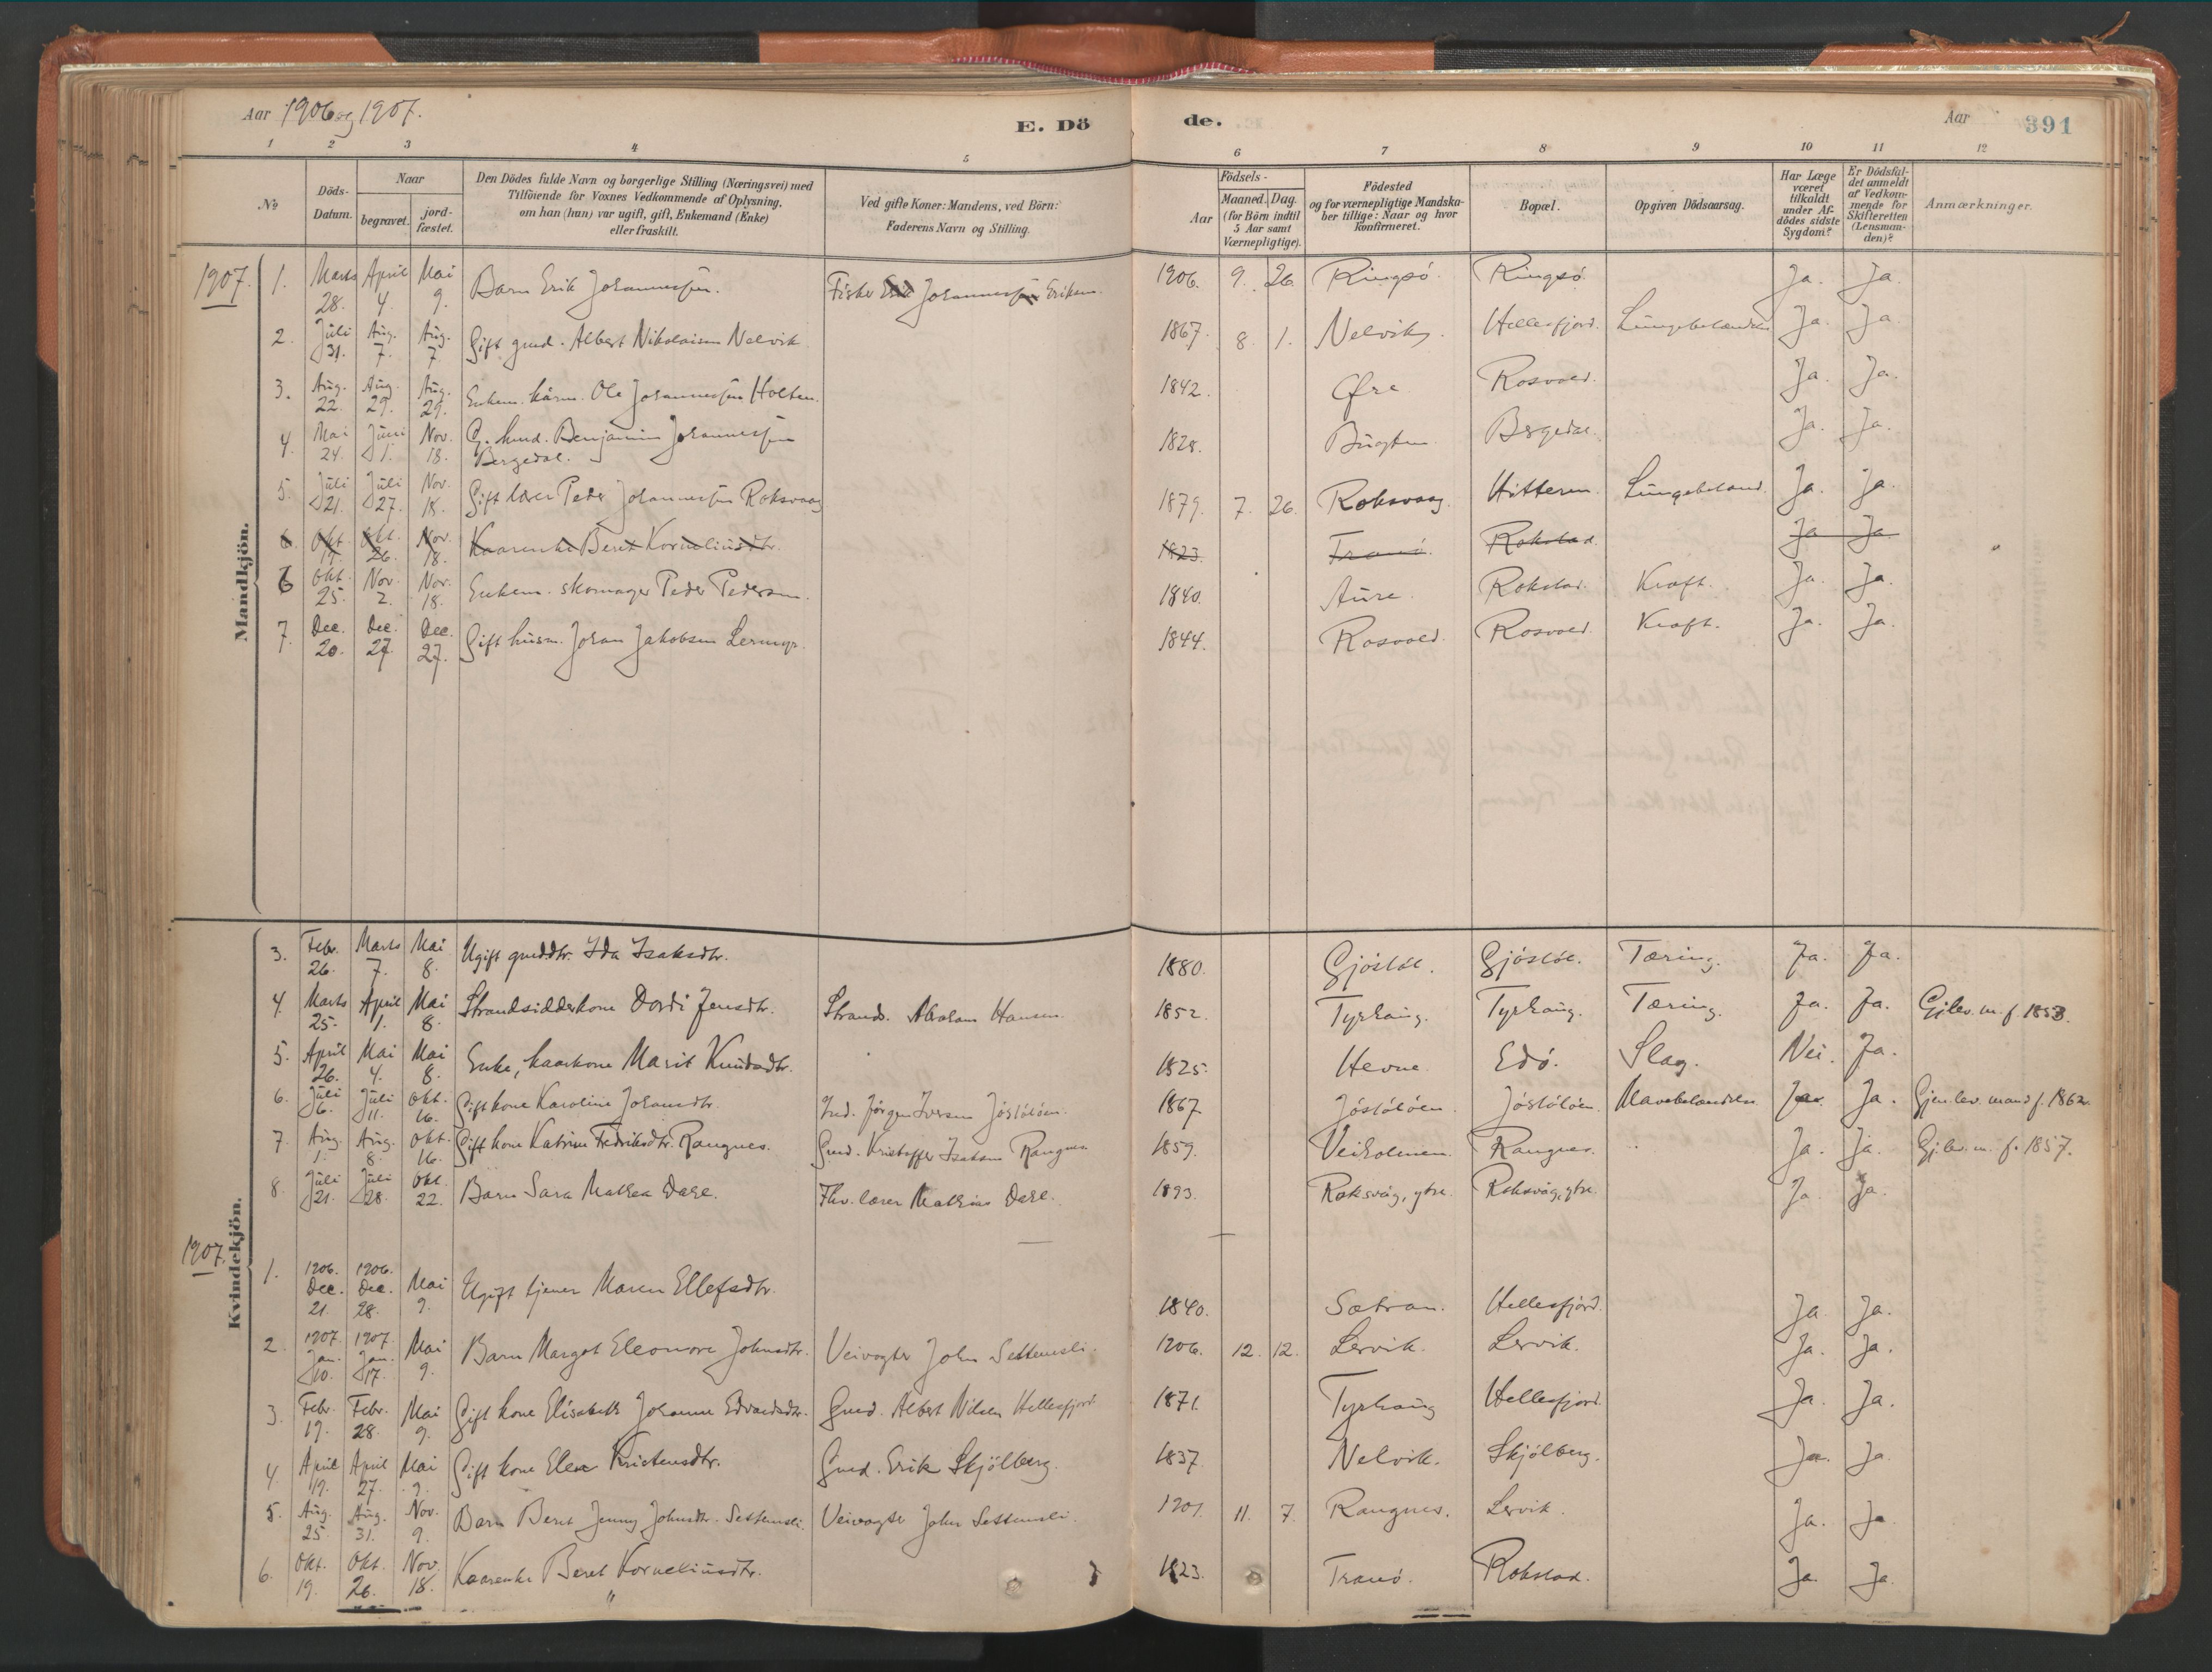 Aar 1906 og 1907.
E. Dö
de.
Aar
391
1 2 3 4 5 6 7 8 9 10 11 12
№
Döds-
Datum.
Naar
begravet.
jord-
fæstet.
Den Dödes fulde Navn og borgerlige Stilling (Næringsvei) med
Tilföiende for Voxnes Vedkommende af Oplysning,
om han (hun) var ugift, gift, Enkemand (Enke)
eller fraskilt.
Ved gifte Koner: Mandens, ved Börn:
Faderens Navn og Stilling.
Födsels-
Aar
Maaned. Dag.
(for Börn indtil
5 Aar samt
Værnepligtige).
Födested
og for værnepligtige Mandska-
ber tillige: Naar og hvor
konfirmeret.
Bopæl.
Opgiven Dödsaarsag.
Har Læge
været
tilkaldt
under Af-
dödes sidste
Sygdom?
Er Dödsfal-
det anmeldt
af Vedkom-
mende for
Skifteretten
(Lensman-
den)?
Anmærkninger.
Mandkjön.
1907. 1. Marts 28. April 4. Mai 9. Barn Erik Johannessen. Fisker Erik Johannessen Eriksen. 1906. 9. 26. Ringsö. Ringsö. Ja. Ja.
2. Juli 31. Aug. 7. Aug. 7. Gift gmd. Albert Nikolaisen Nelvik. 1867. 8. 1. Nelvik. Hellesfjord. Lungebetændelse Ja. Ja.
3. Aug. 22. Aug. 29. Aug. 29. Enkem. kårm. Ole Johannessen Holten. 1842. Øre Rosvold. Ja. Ja.
4. Mai 24. Juni 1. Nov. 18. G. husmd. Benjamin Johannessen Bergedal. 1828. Bugten. Bergedal. Ja. Ja.
5. Juli 21. Juli 27. Nov. 18. Gift lærer Peder Johannessen Roksvaag 1879. 7. 26. Roksvaag. Hitteren. Lungebetænd. Ja. Ja.
6. Okt. 19. Okt. 26. Nov. 18. Kaarenke Beret Korneliusdtr. 1823. Tranö. Rokstad. Ja Ja
6 Okt. 25. Nov. 2. Nov. 18. Enkem. skomager Peder Pedersen. 1840. Aure. Rokstad. Kræft. Ja. Ja.
7. Dec. 20. Dec. 27. Dec. 27. Gift husm. Johan Jakobsen Lermyr. 1844. Rosvold. Rosvold. Kræft. Ja. Ja.
Kvindekjön.
3. Febr. 26. Marts 7. Mai 8. Ugift gmddtr. Ida Isaksdtr. 1880. Gjöslöt. Gjöslöt. Tæring. Ja. Ja.
4. Marts 25. April 1. Mai 8. Strandsidderkone Dordi Jensdtr. Strands. Abraham Hansen. 1852. Tyrhaug. Tyrhaug. Tæring. Ja. Ja. Gjlev. m. f. 1853.
5. April 26. Mai 4. Mai 8. Enke, kaarkone Marit Knudsdtr. 1825. Hevne. Edö. Slag. Nei. Ja.
6. Juli 6. Juli 11. Okt. 16. Gift kone Karoline Johansdtr. Ind. Jörgen Iversen Jöslöiöen. 1867. Jöslöiöen. Jöslöiöen. Mavebetændelse. Ja. Ja. Gjenlev. mand f. 1862.
7. Aug. 1. Aug. 8. Okt. 16. Gift kone Katrine Fredriksdtr. Rangnes. Gmd. Kristoffer Isaksen Rangnes 1859. Veiholmen. Rangnes. Ja. Ja. Gjlev. m. f. 1857.
8. Juli 21. Juli 28. Okt. 22. Barn Sara Mathea Dahl. Fhv. lærer Mathias Dahl. 1893. Roksvåg, ytre. Roksvåg, ytre. Ja. Ja.
1907.
1. 1906. Dec. 21. 1906. Dec. 28. Mai 9. Ugift tjener Maren Ellefsdtr. 1840. Sætran. Hellesfjord. Ja. Ja.
2. 1907. Jan. 10. 1907. Jan. 17. Mai 9. Barn Margot Eleonore Johnsdtr. Veivogter John Settemsli. 1906. 12. 12. Lervik. Lervik. Ja. Ja.
3. Febr. 19. Febr. 28. Mai 9. Gift kone Elisabeth Johanne Edvardsdtr. Gmd. Albert Nilsen Hellesfjord. 1871. Tyrhaug Hellesfjord. Ja. Ja.
4. April 19. April 27. Mai 9. Gift kone Elen Kristensdtr. Gmd. Erik Skjölberg. 1837. Nelvik. Skjölberg. Ja. Ja.
5. Aug. 25. Aug. 31. Nov. 9. Barn Beret Jenny Johnsdtr. Settemsli. Veivogter John Settemsli. 1901. 11. 7. Rangnes. Lervik. Ja. Ja
6. Okt. 19. Okt. 26. Nov. 18. Kaarenke Beret Korneliusdtr. 1823. Tranö. Rokstad. Ja. Ja.